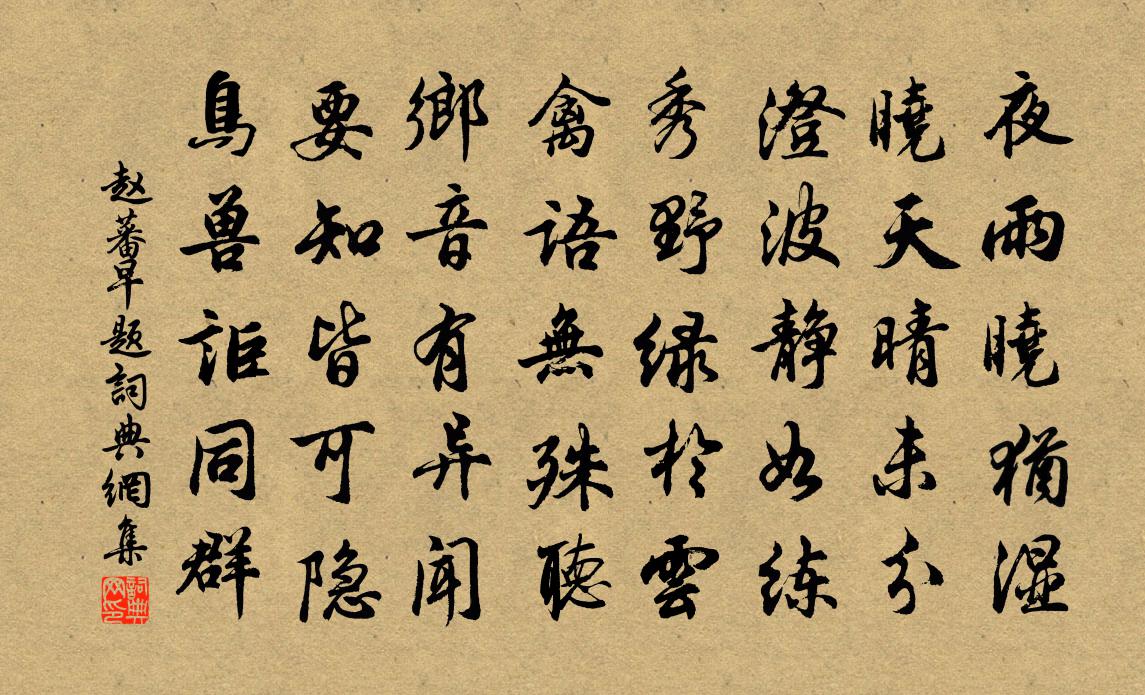 夜雨曉猶湿
曉天晴未分
澄波静如练
秀野绿於雲
禽語無殊聽
鄉音有异闻
要知皆可隐
鳥兽詎同群
赵蕃早题詞典網集
詞典网印